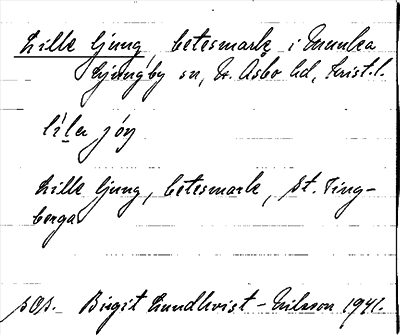 Lille Ljung, betesmark i Munka
Ljungby sn, N. Åsbo hd, Krist. l.
lilər jöŋ
Lille Ljung, betesmark, St. Ting-
berga
sgs. Birgit Lundkvist-Nilsson 1941.